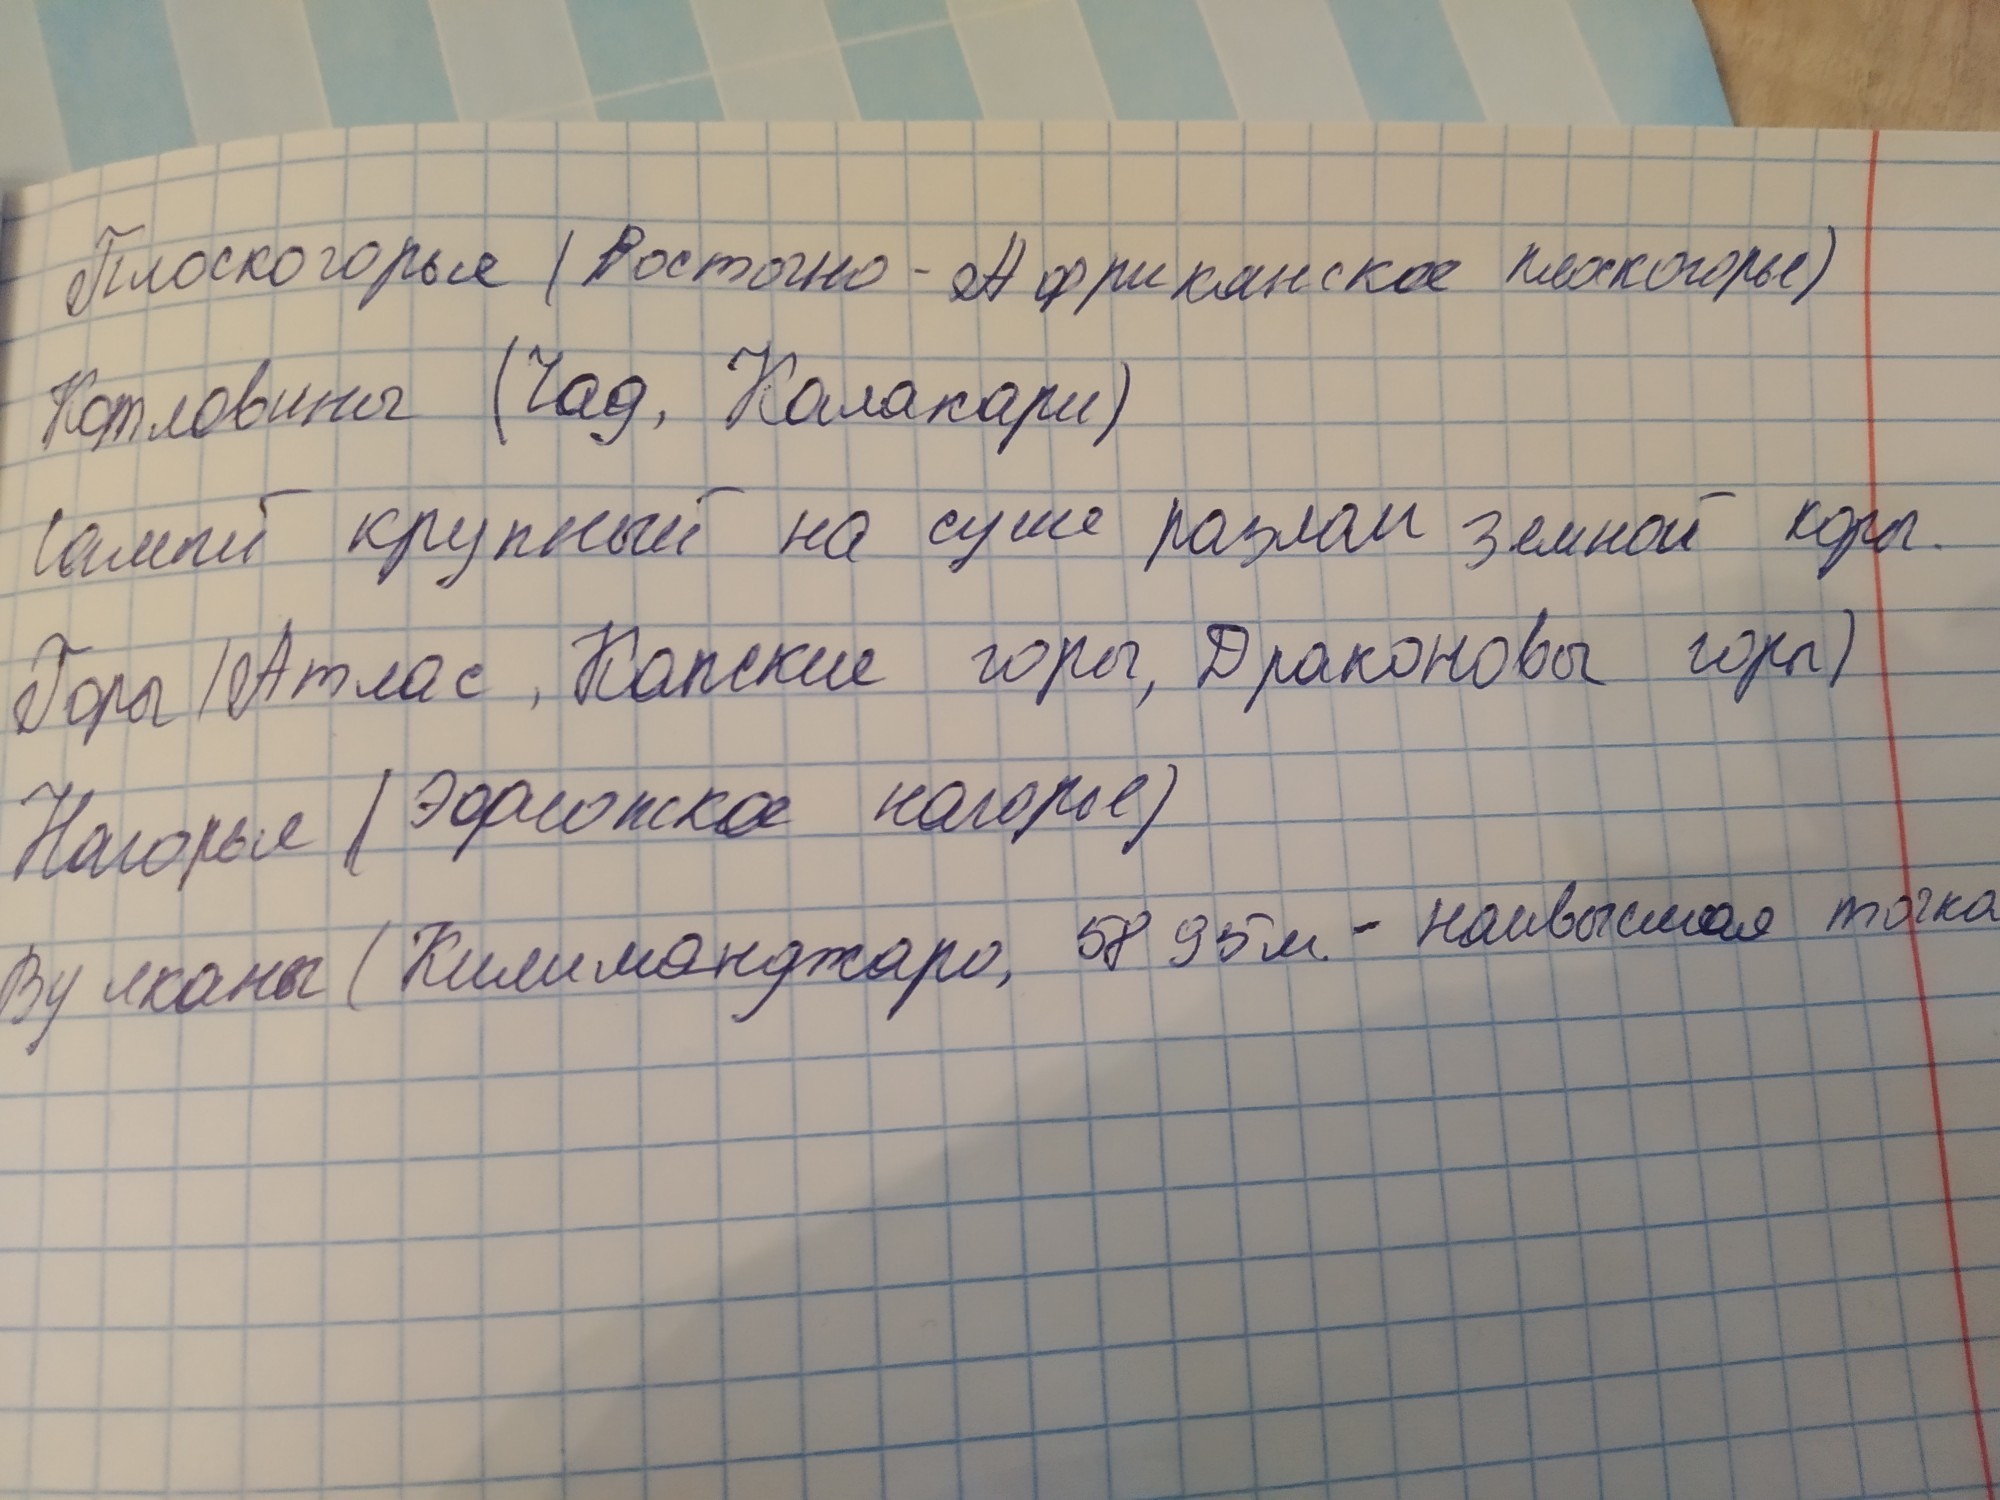 Плоскогорья (Восточно-Африканское плоскогорье)
Котловины (Чад, Калакари)
Самый крупный на суше разлом земной коры.
Горы (Атлас, Капские горы, Драконовы горы)
Нагорья (Эфиопское нагорье)
Вулканы (Килиманджаро, 5895м. - наивысшая точка